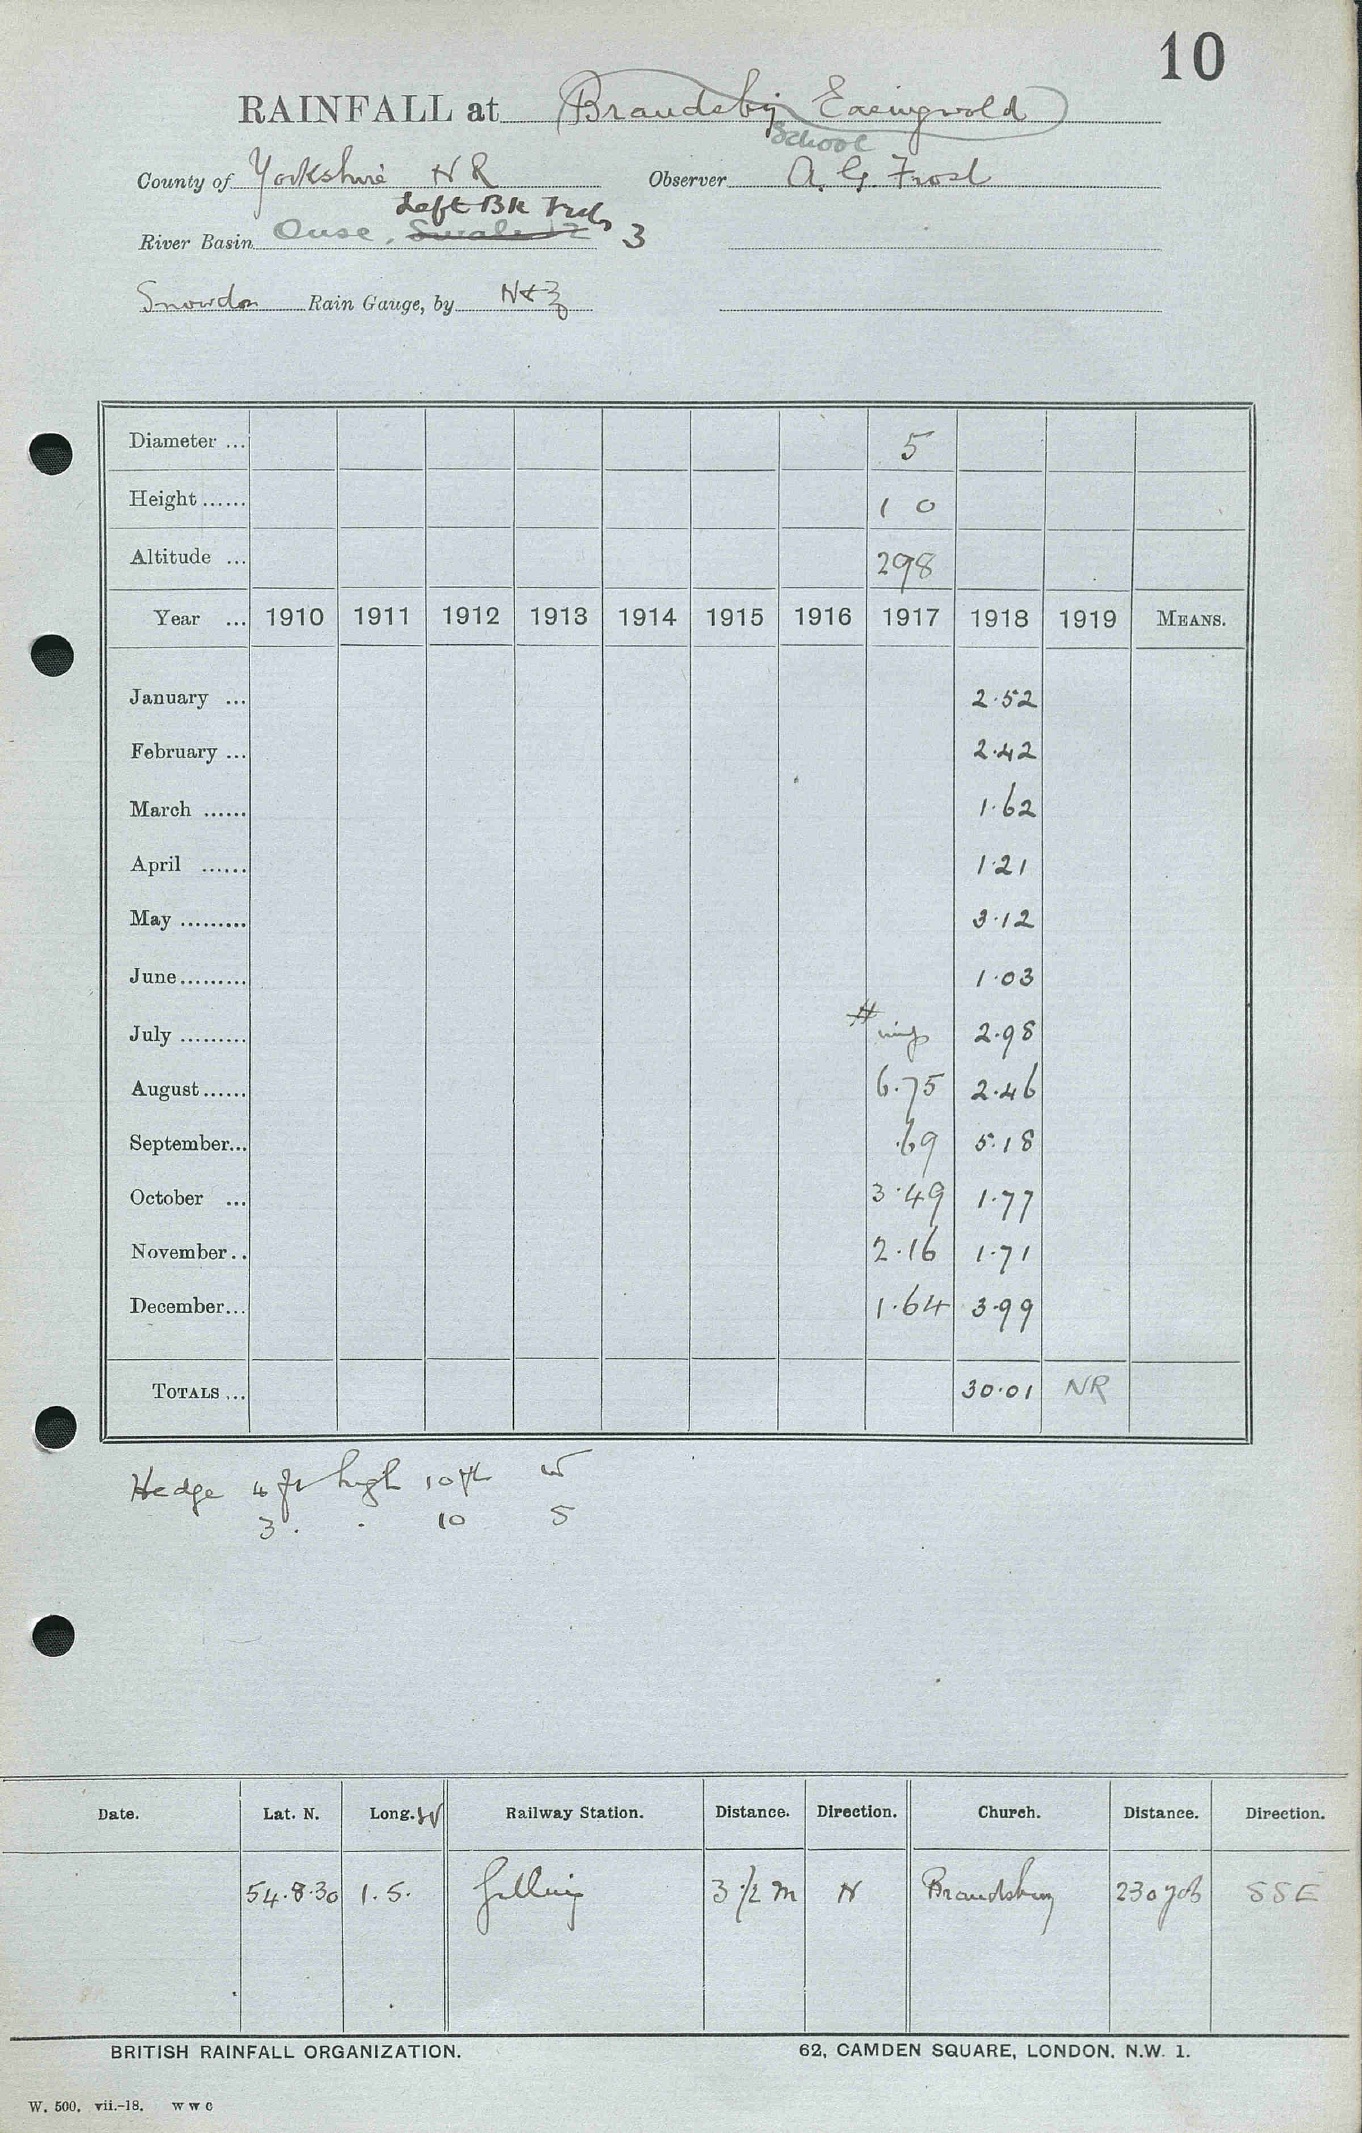 10
RAINFALL at Brandsby Easingwold
School
County of Yorkshire N R Observer A. G. Frost
Left Bk
River Basin Ouse, Swale 3
Snowdon Rain Gauge, by N & Z
Diameter ... 5
Height ...... 1 0
Altitude ... 298
Year ... 1910 1911 1912 1913 1914 1915 1916 1917 1918 1919 MEANS.
January ... 2.52
February ... 2.42
March ...... 1.62
April ...... 1.21
May ......... 3.12
June ......... 1.03
July ......... 2.98
August ...... 6.75 2.46
September... .69 5.18
October ... 3.49 1.77
November.. 2.16 1.71
December... 1.64 3.99
TOTALS ... 30.01 NR
Hedge 4 ft high 10 ft W
3 . . 10 S
Date. Lat. N. Long. W Railway Station. Distance. Direction. Church. Distance. Direction.
54.8.30 1.5. Gilling 3 1/2 m N Brandsby 230 yds SSE
BRITISH RAINFALL ORGANIZATION. 62, CAMDEN SQUARE, LONDON. N.W. 1.
W. 500. vii.-18. W W C